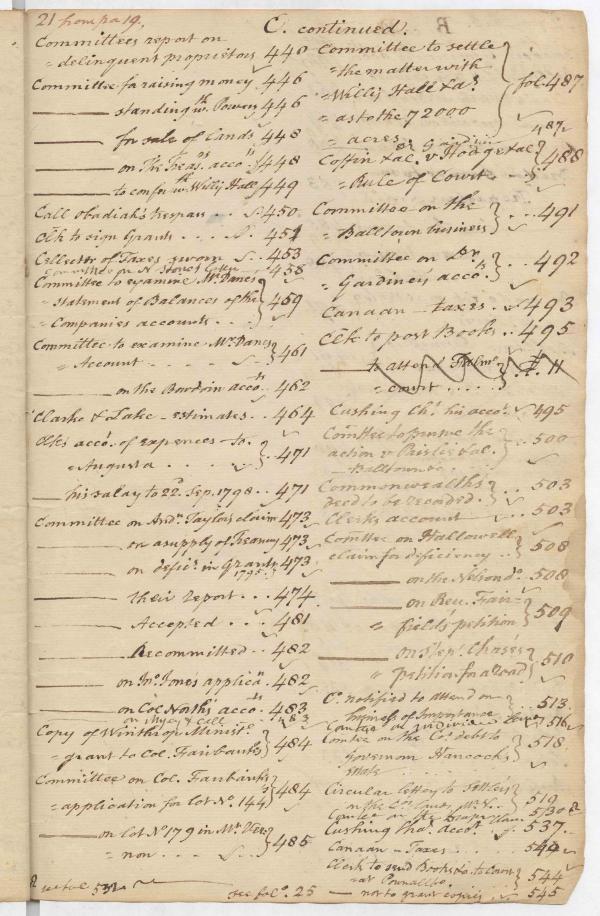 21 from pa 19.
C. continued.
Committees report on
= delinquent proprietors 440
Committee for raising money . 446
——— standing wth. Powers 446
——— for sale of Lands 448
——— on The Treas.rs acco.ts 448
——— to confer wth. Willis Hall 449
Call Obadiah's trespass . . . 450
Clk to sign Grants . . . 451
Collector of Taxes sworn . 453
Committee on N. Stone's 458
Committee to examine Mr. Danes
= Statement of Balances of the
= Companies accounts . . . 459
Committee to examine Mr. Danes
= Account . . . 461
——— on the Bowdoin acco.ts . 462
Clarke & Lake — estimates . . 464
Clks acco.t of expences to
= Augusta . . . . 471
—— his salary to 22d. Sep. 1798 . . 471
Committee on And.w Taylors claim 473
——— on a supply of Treasury 473
——— on defic.y in Grants 473
1795.
——— their report . . . 474
——— Accepted . . . 481
——— Recommitted . . 482
——— on Jno. Jones applica.n . 482
——— on Col. North's acco.ts . 483
483
Copy of Winthrop Minist.l
= grant to Col. Fairbanks 484
Committee on Col. Fairbanks
= application for lot No. 144 484
——— on lot No 179 in Mt. Ver=
= non . . . . 485
see fol. 532
Committee to settle
= the matter with
= Willis Hall &a.
= as to the 72000
= acres . . . fol. 487
487
Coffin &al. v Hodge &al
= Rule of Court . . 488
Committee on the
= Balltown business . . . 491
Committee on Dr.
= Gardiners acco.t . . . 492
Canaan — taxes . . 493
Clk to post Books . . 495
——— to attend Falmo.
= court . . . .
Cushing Ch.s his acco.t . 495
Com̃ttee to peruse the
action v Paisley &al.
— Balltown &c . . 500
Commonwealths
deed to be recorded . . . 503
Clerks account . . 503
Com̃ttee on Hallowell
claim for deficiency . . 508
——— on the Nelson do. . 508
——— on Rev. Fair=
= fields petition 509
——— on Step. Chases
" petition for a road 510
Co. notified to attend on
business of Importance . . 513
516
Com̃tee on the Co.s debt to
Governour Hancocks
estate . . . . 518
Circular letter to settlers
on the Co. lands . . 519
530
Cushing Tho.s acco.t . . 537
Canaan — Taxes . . . 540
Clerk to send Books &c. to Court
at Pownallbo. . . . 544
see fol.o 25 — not to grant copies 545